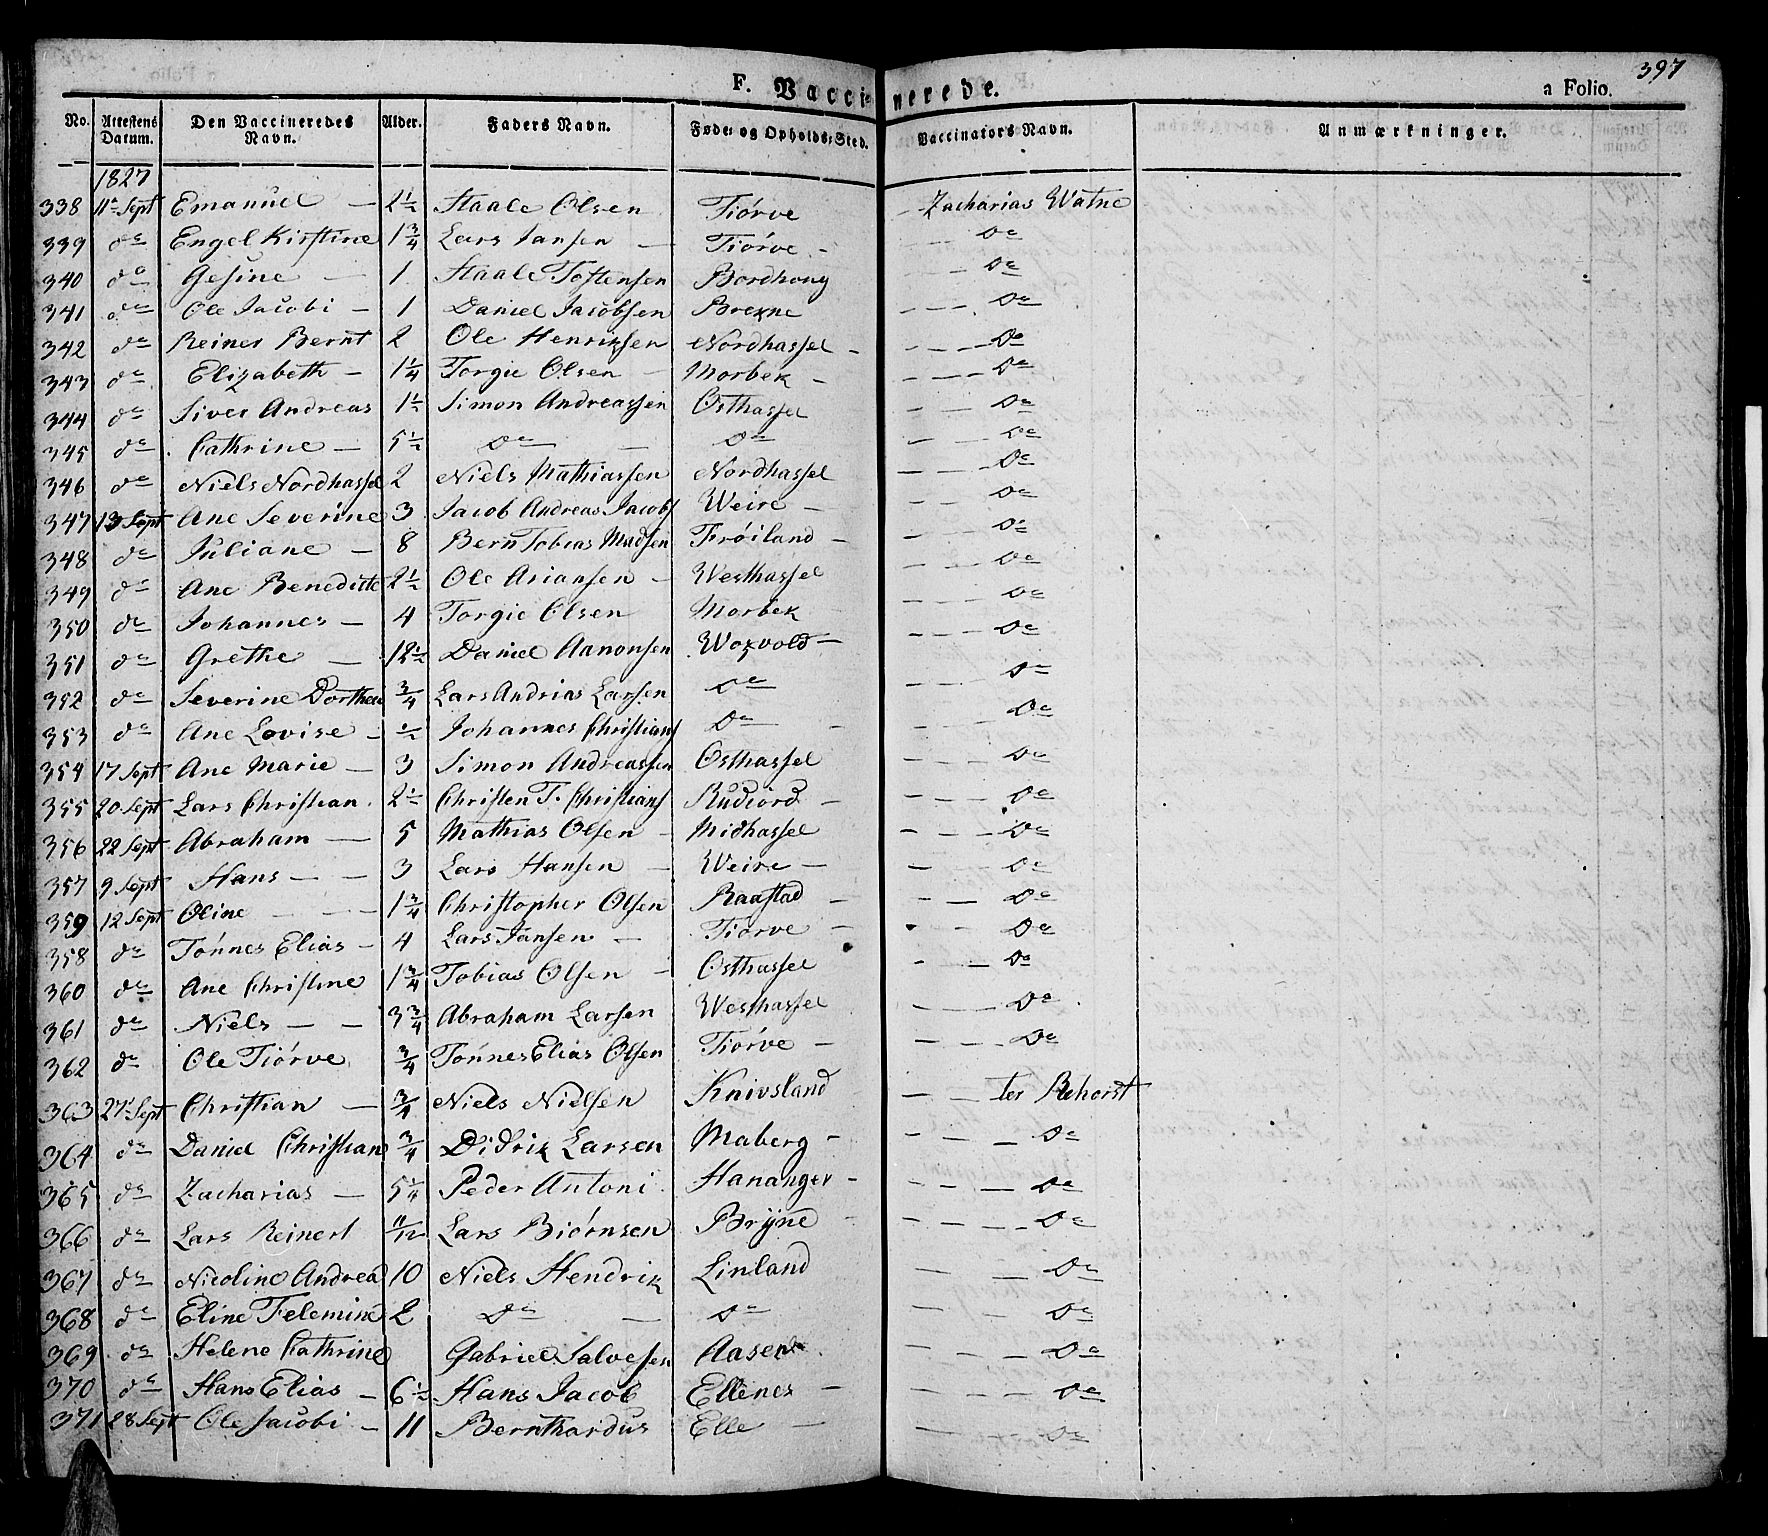 397
F. Vaccinerede. a Folio.
No. Attestens Datum. Den Vaccineredes Navn. Alder. Faders Navn. Føde- og Opholds-Sted. Vaccinators Navn. Anmærkninger.
1827
338 11te Sept Emanuel — 2½ Staale Olsen Tiörve — Zacharias Watne
339 do Engel Kirstine 1¾ Lars Jansen — Tiörve — — do
340 do Gesine — 1 Staale Tostensen Bordhoug — do
341 do Ole Jacobi — 1 Daniel Jacobsen Brekne — — — do
342 do Reiner Bernt 2 Ole Henriksen Nordhassel — — — — do
343 do Elizabeth — 1¼ Torgie Olsen — Morbek — — — — do
344 do Siver Andreas 1½ Simon Andreassen Osthassel — — do
345 do Cathrine — 5½ do — do — — do
346 do Niels Nordhassel 2 Niels Mathiassen Nordhassel — — — do
347 13 Sept Ane Severine 3 Jacob Andreas Jacobs Weire — — — do
348 do Juliane — 8 Bern Tobias Madsen Fröiland — — — do
349 do Ane Benedicte 2½ Ole Ariansen — Westhassel — — do
350 do Johannes — 4 Torgie Olsen Morbek — — — do
351 do Grethe — 12½ Daniel Aanonsen Woxvold — — — do
352 do Severine Dorthea ¾ Lars Andrias Larsen do — — do
353 do Ane Lovise — ½ Johannes Christians do — — — do
354 17 Sept Ane Marie — 3 Simon Andreassen Osthassel — — — do
355 20 Sept Lars Christian 2½ Christen T. Christians Rudiord — — — do
356 22 Sept Abraham — 5 Mathias Olsen — Midhassel — — — do
357 9 Sept Hans — — 3 Lars Hansen — Weire — — — do
359 12 Sept Oline — — — 1¾ Christopher Olsen Raastad — — — do
358 do Tönnes Elias — 4 Lars Jansen — Tiörve — — — do
360 do Ane Christine 1¾ Tobias Olsen — Osthassel — — do
361 do Niels — — 3¾ Abraham Larsen Westhassel — — do
362 do Ole Tiörve ¾ Tönnes Elias Olsen Tiörve — — — do
363 27 Sept Christian — ¾ Niels Nielsen Knivsland — — ter Rehorst
364 do Daniel Christian ¾ Didrik Larsen Maberg — — — do
365 do Zacharias — 5¼ Peder Antoni Hananger — — — — do
366 do Lars Reinert 11/12 Lars Biörnsen Brÿne — — — — do
367 do Nicoline Andrea 10 Niels Hendrik Linland — — do
368 do Eline Felemine 2 do — do — — do
369 do Helene Cathrine Gabriel Salvesen Aasen — — — do
370 do Hans Elias — 6½ Hans Jacob Ellenes — — — do
371 28 Sept Ole Jacobi — 11 Bernthardus Elle — — — do